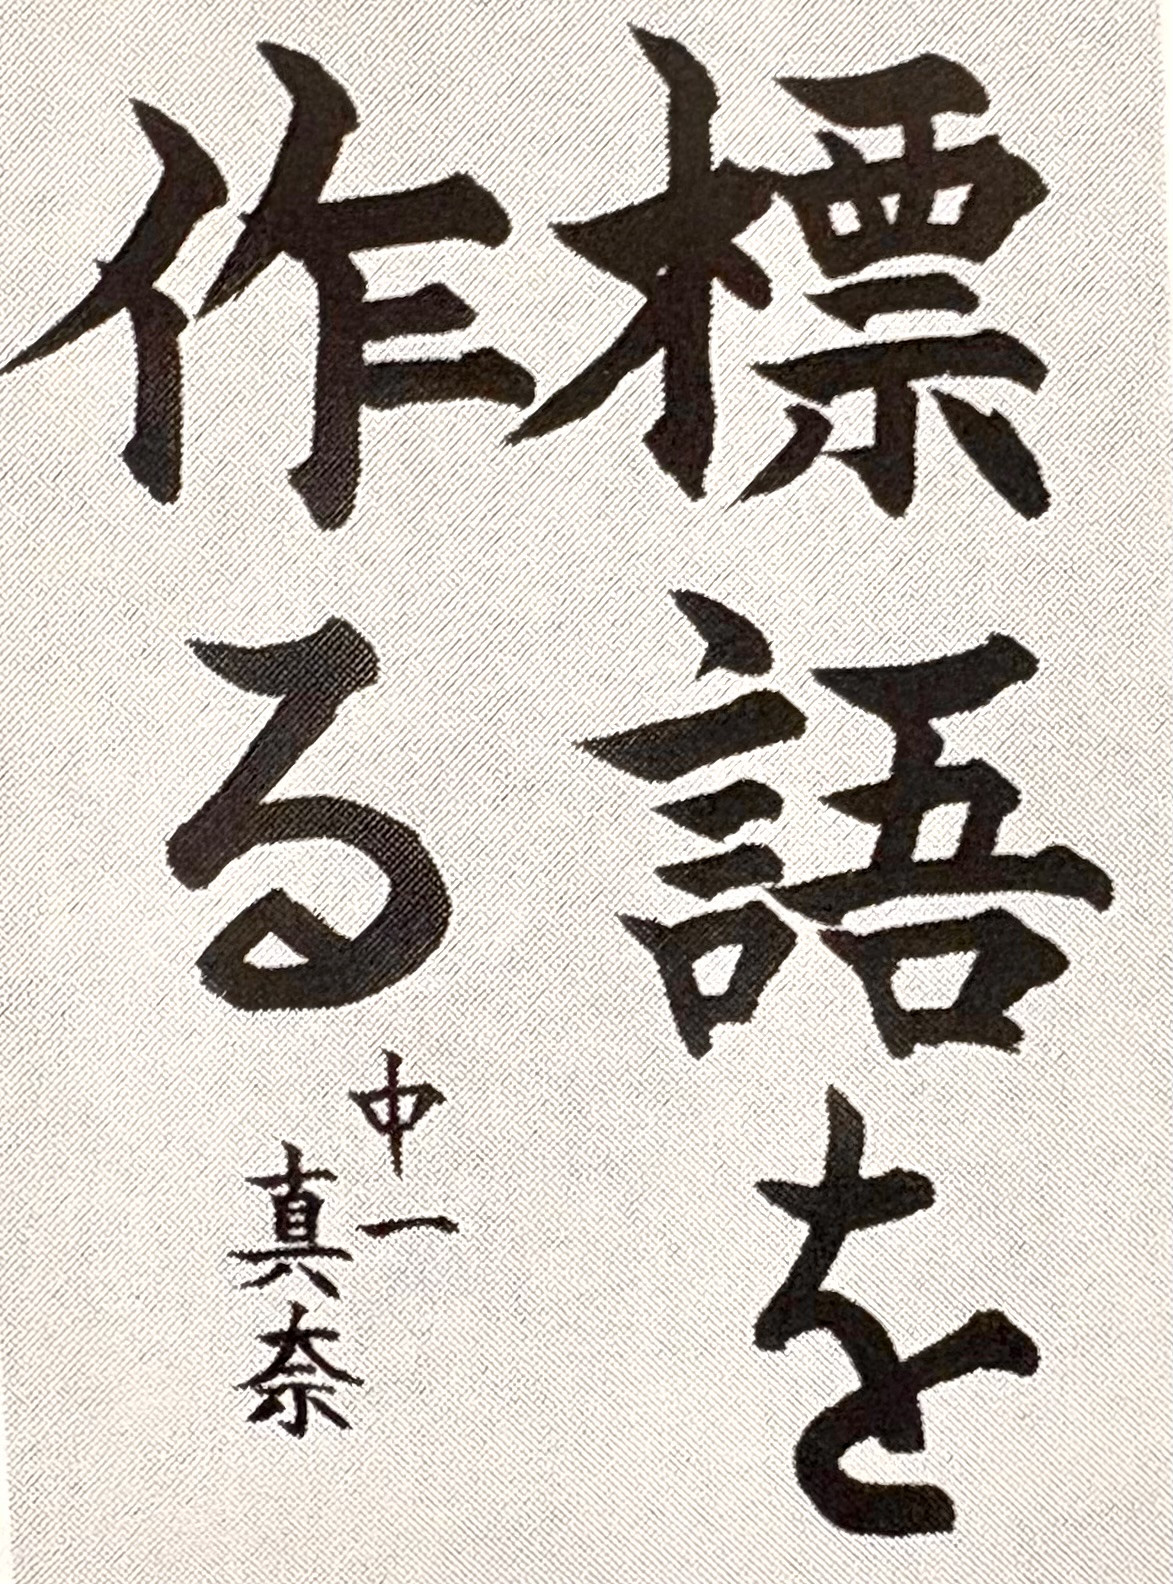 標語を
作る
中一
真奈